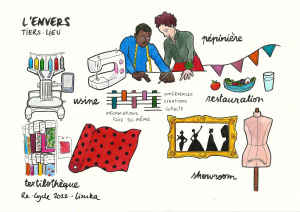 L'ENVERS
TIERS-LIEU
pépinière
usine
conférences
créations
collecté
informations
faire soi-même
restauration
textilothèque
showroom
Re-Cycle 2022 - Linska